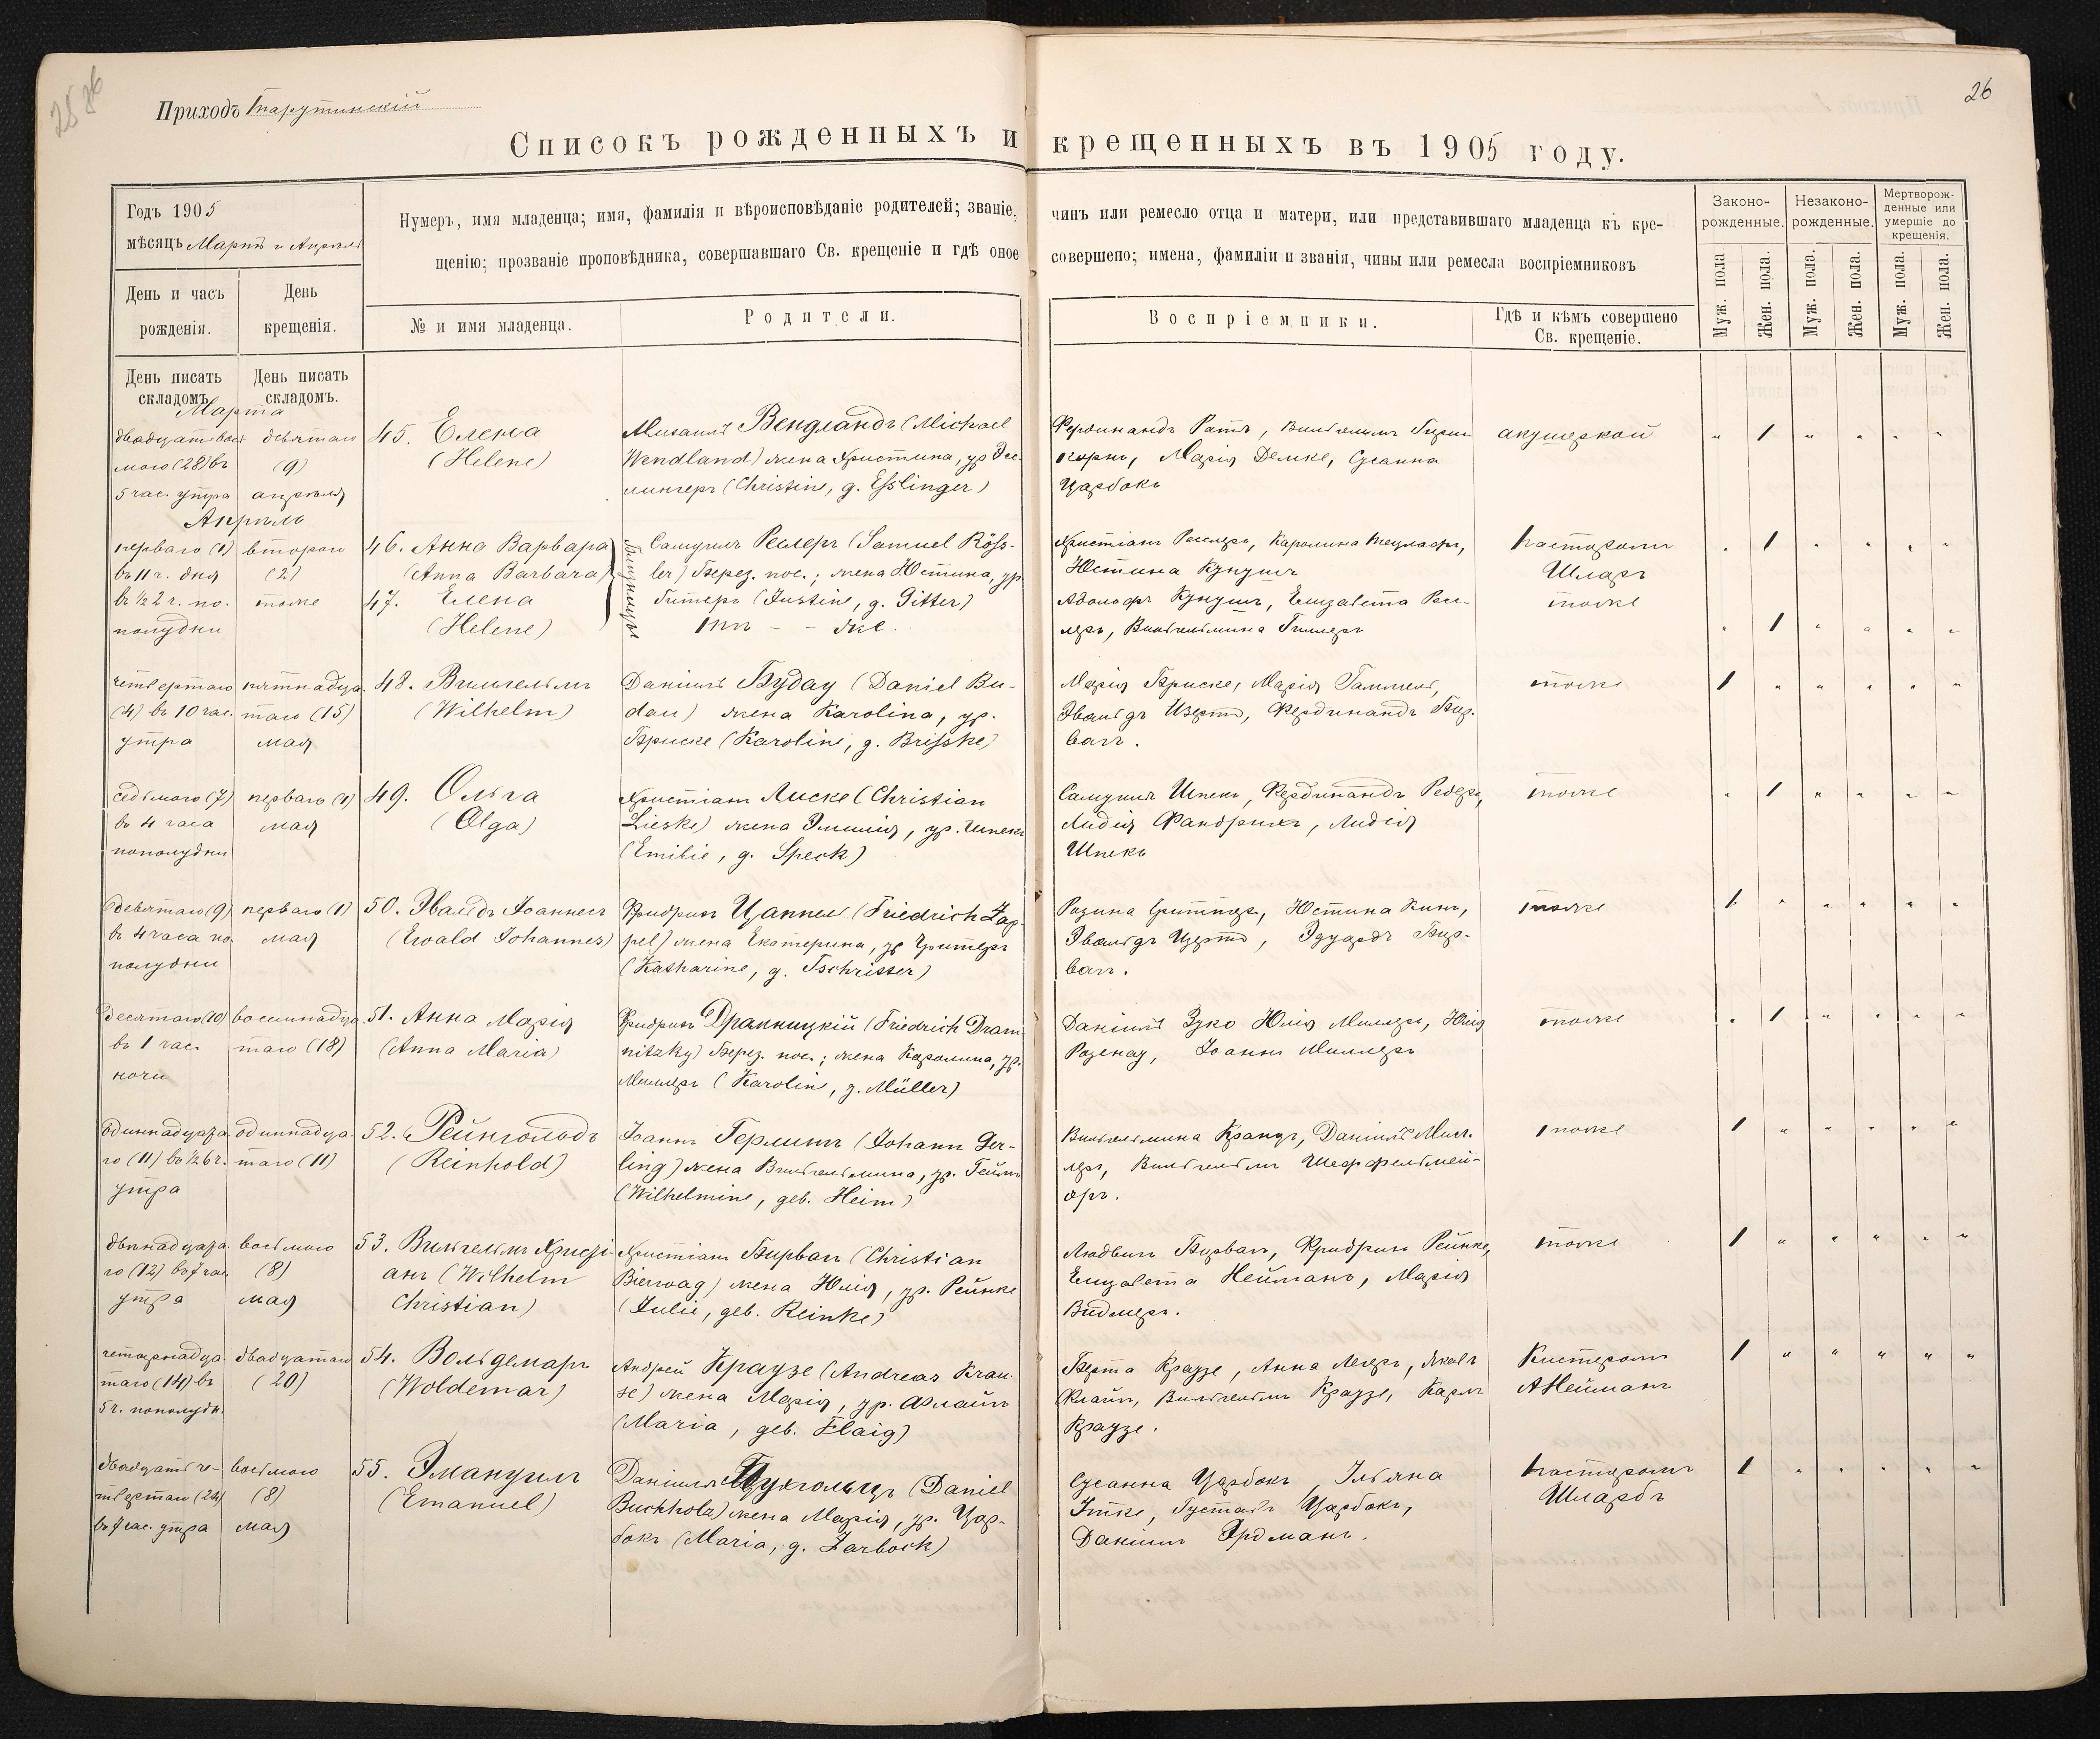 26
Приходъ Тарутинскій
Списокъ рожденныхъ и крещенныхъ въ 1905 году.
Годъ 1905
мѣсяцъ Мартъ и Апрѣль
Нумеръ, имя младенца; имя, фамилія и вѣроисповѣданіе родителей; званіе, чинъ или ремесло отца и матери, или представившаго младенца къ кре-
щенію; прозваніе проповѣдника, совершавшаго Св. крещеніе и гдѣ оное совершено; имена, фамиліи и званія, чины или ремесла воспріемниковъ
Законо-
рожденные.
Незаконо-
рожденные.
Мертворож-
денные или
умершіе до
крещенія.
День и часъ
рожденія.
День
крещенія.
№ и имя младенца.
Родители.
Воспріемники.
Гдѣ и кѣмъ совершено
Св. крещеніе.
Муж. пола
Жен. пола.
Муж. пола.
Жен. пола.
Муж. пола.
Жен. пола.
День писать
складомъ.
День писать
складомъ.
Марта
двадцать вось
маго (28) въ
5 час. утра
девятаго
(9)
апрѣля
45. Елена
(Helene)
Михаилъ Вендландъ (Michael
Wendland) жена Христина, ур Эсс-
лингеръ (Christine, g. Esslinger)
Фердинандъ Ратъ, Вильгельмъ
Марія Демке, Сусанна
Царбокъ
акушеркой
" 1 " " " "
Апрѣль
перваго (1)
въ 11 ч. дня
второго
(2)
46. Анна Варвара
(Anna Barbara)
Близнецы
Самуилъ Реслеръ (Samuel Röss-
ler) Берез. пос.; жена Юстина, ур
Гиттеръ (Justine, g. Gitter)
Христіанъ Реслеръ, Каролина
Юстина Кунушъ
Пасторомъ
Шларъ
" 1 " " " "
въ ½ 2 ч. по-
полудни
тоже
47. Елена
(Helene)
тѣ - - же.
Адольфъ Кунушъ, Елизавета Рес-
леръ, Вильгельмина Гиллеръ
тоже
" 1 " " " "
четвертаго
(4) въ 10 час.
утра
пятнадца
таго (15)
мая
48. Вильгельмъ
(Wilhelm)
Даніилъ Будау (Daniel Bu-
dau) жена Каролина, ур.
Бриске (Karoline, g. Brisske)
Марія Бриске, Марія Гаммель,
Эвальдъ Цертъ, Фердинандъ Бир-
вагъ.
тоже
1 " " " " "
седьмого (7)
въ 4 часа
пополудни
перваго (1)
мая
49. Ольга
(Olga)
Христіанъ Лиске (Christian
Lieske) жена Эмилія, ур. Шпекъ
(Emilie, g. Speck)
Самуилъ Шпекъ, Фердинандъ Редеръ,
Лидія Фандрихъ, Лидія
Шпекъ
тоже
" 1 " " " "
девятаго (9)
въ 4 часа по
полудни
перваго (1)
мая
50. Эвальдъ Іоаннесъ
(Ewald Johannes)
Фридрихъ Цаппель (Friedrich Zap-
pel) жена Екатерина, ур Чриттеръ
(Katharine, g. Tschritter)
Розина Чриттеръ, Юстина Кинъ,
Эвальдъ Цертъ, Эдуардъ Бир-
вагъ.
тоже
1 " " " " "
десятаго (10)
въ 1 час.
ночи
восемнадца
таго (18)
51. Анна Марія
(Anna Maria)
Фридрихъ Драмницкій (Friedrich Dram-
nitzky) Берез. пос.; жена Каролина, ур.
Миллеръ (Karolin, g. Müller)
Даніилъ Зуко Юлія Миллеръ, Юлія
Розенау, Іоаннъ Миллеръ
тоже
" 1 " " " "
одиннадцата
го (11) въ ½ 6 ч.
утра
одиннадца
таго (11)
52. Рейнгольдъ
(Reinhold)
Іоаннъ Герлингъ (Johann Ger-
ling) жена Вильгельмина, ур. Геймъ
(Wilhelmine, geb. Heim)
Вильгельмина Кранцъ, Даніилъ Мил-
леръ, Вильгельмъ Шеффельмей-
еръ.
тоже
1 " " " " "
двѣнадцата
го (12) въ 7 час
утра
восьмого
(8)
мая
53. Вильгельмъ Христі-
анъ (Wilhelm
Christian)
Христіанъ Бирвагъ (Christian
Bierwag) жена Юлія, ур. Рейнке
(Julie, geb. Reinke)
Людвигъ Бирвагъ, Фридрихъ Рейнке,
Елизавета Нейманъ, Марія
Видмеръ.
тоже
1 " " " " "
четырнадца
таго (14) въ
5 ч. пополудн.
двадцатаго
(20)
54. Вольдемаръ
(Woldemar)
Андрей Краузе (Andreas Krau-
se) жена Марія, ур. Флайгъ
(Maria, geb. Flaig)
Берта Краузе, Анна Легеръ, Яковъ
Флайгъ, Вильгельмъ Краузе, Карлъ
Краузе.
Кистеромъ
А Нейманъ
1 " " " " "
двадцать че-
твертаго (24)
въ 7 час. утра
восьмого
(8)
мая
55. Эмануилъ
(Emanuel)
Даніилъ Бухгольцъ (Daniel
Buchholz) жена Марія, ур. Цар-
бокъ (Maria, g. Zarbock)
Сусанна Царбокъ, Юльяна
Густавъ Царбокъ,
Даніилъ Эрдманъ.
Пасторомъ
Шларбъ
1 " " " " "